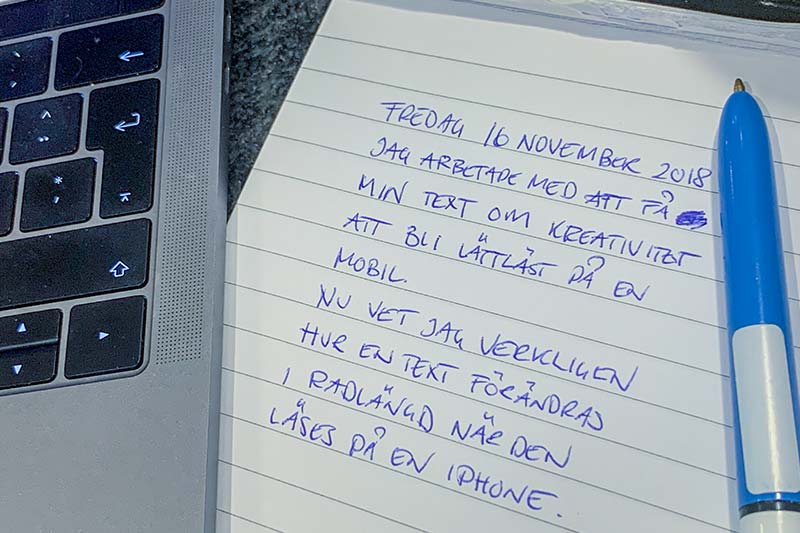 FREDAG 16 NOVEMBER 2018
JAG ARBETADE MED ATT FÅ
MIN TEXT OM KREATIVITET
ATT BLI LÄTTLÄST PÅ EN
MOBIL.
NU VET JAG VERKLIGEN
HUR EN TEXT FÖRÄNDRAS
I RADLÄNGD NÄR DEN
LÄSES PÅ EN IPHONE.